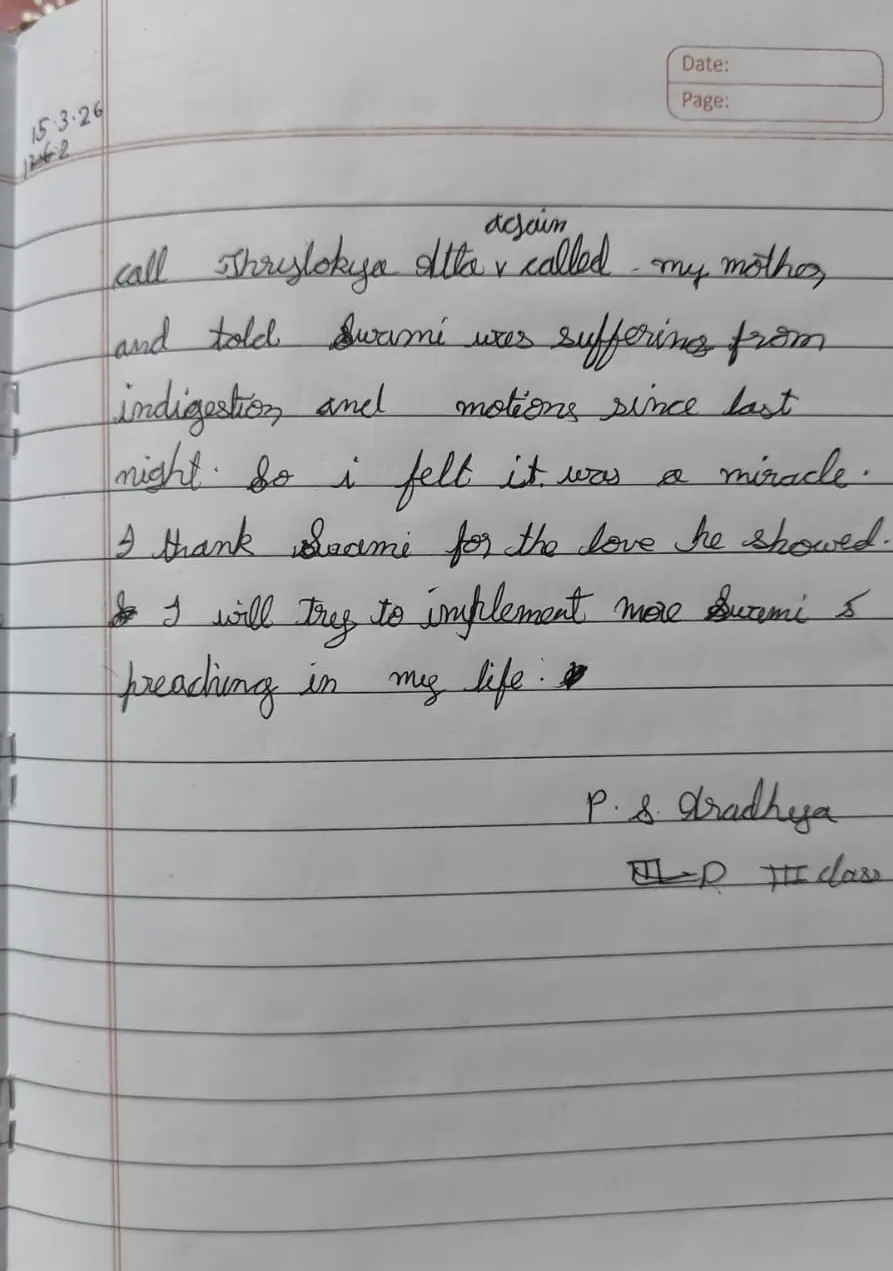 Date:
Page:
15.3.26
again
call Thrylokya Atta v called my mother
and told Swami was suffering from
indigestion and motions since last
night. So i felt it was a miracle.
I thank Swami for the love he showed.
I will try to implement more Swami s
preaching in my life.
P. S. Aradhya
D III class